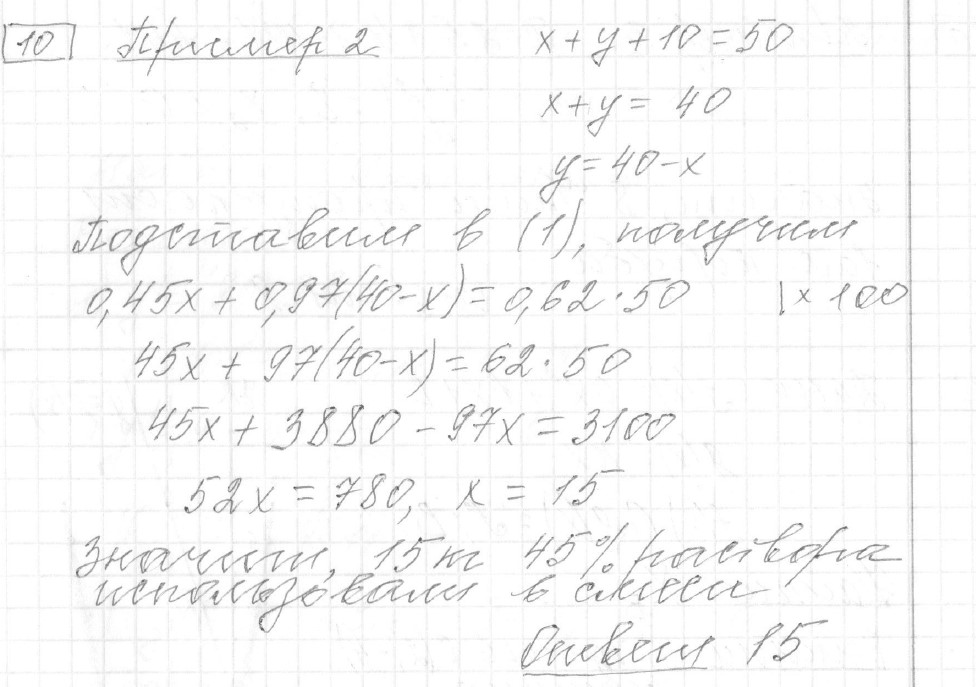 10 Пример 2 x + y + 10 = 50
x + y = 40
y = 40 - x
Подставим в (1), получим
0,45x + 0,97(40-x) = 0,62·50 | × 100
45x + 97(40-x) = 62·50
45x + 3880 - 97x = 3100
52x = 780, x = 15
Значит, 15 кг 45% раствора
использовали в смеси
Ответ 15